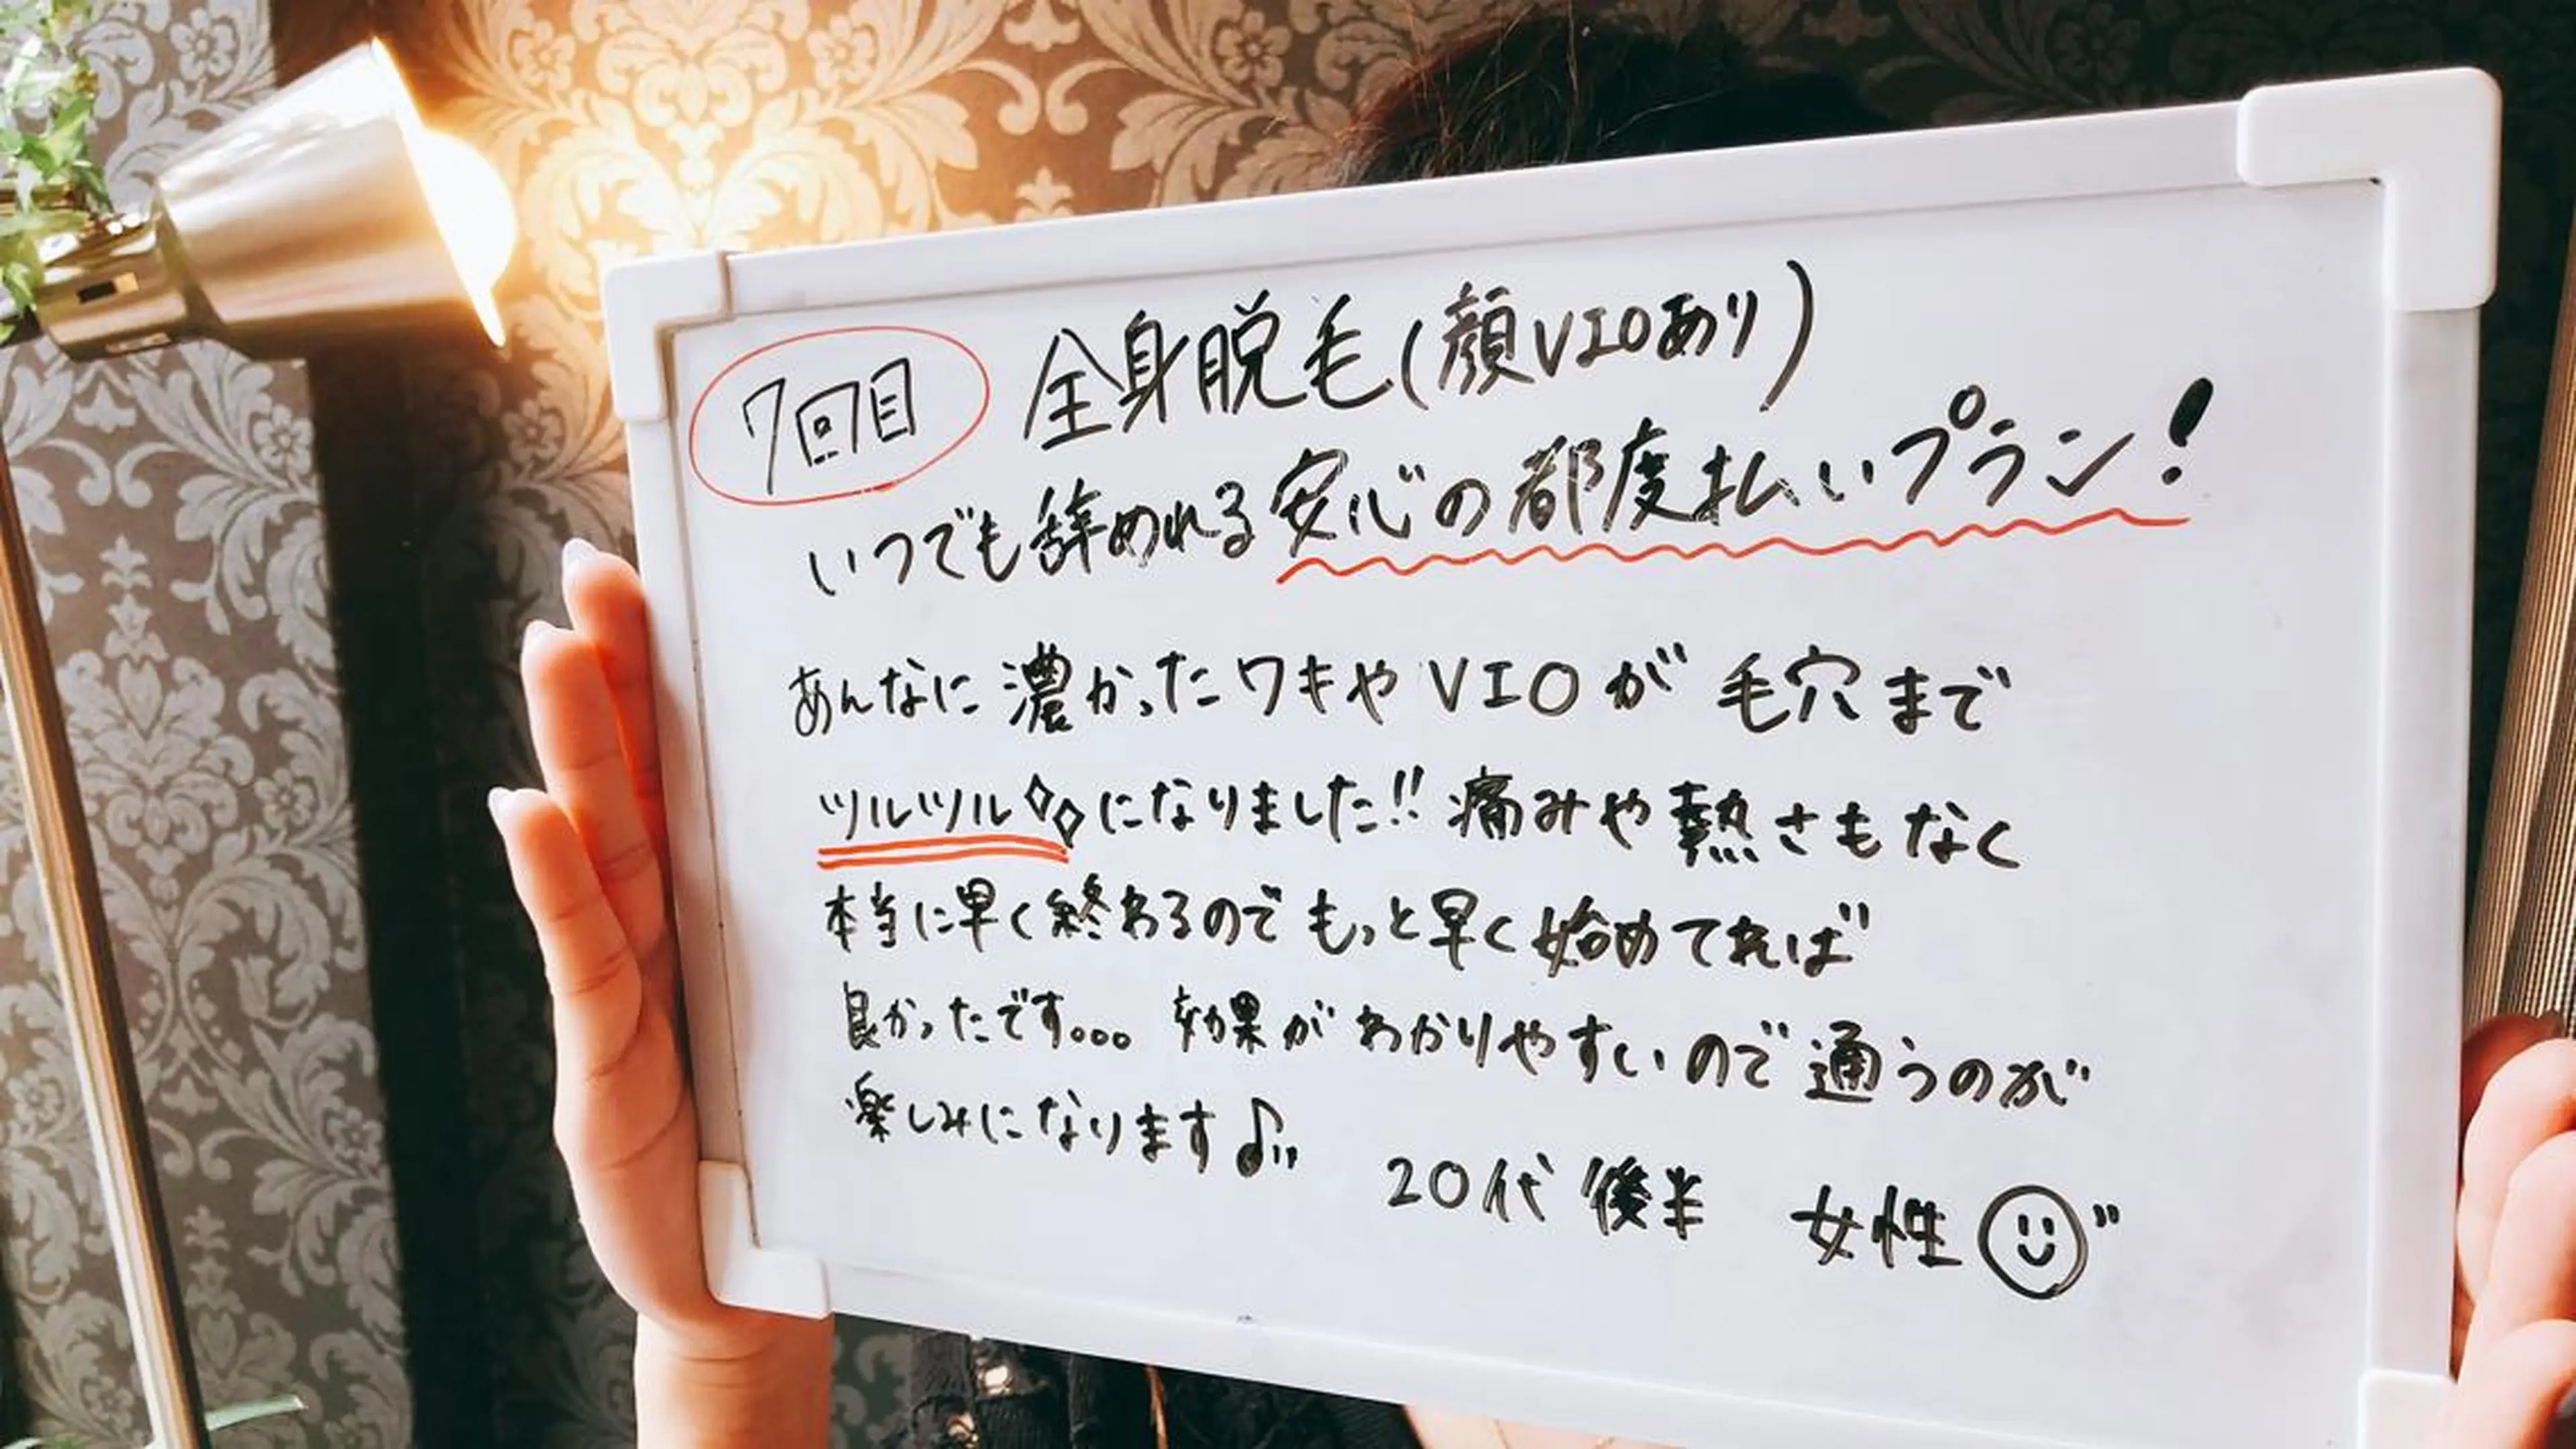 7回目 全身脱毛(顔VIOあり)
いつでも辞めれる安心の都度払いプラン!
あんなに濃かったワキやVIOが毛穴まで
ツルツルになりました!!痛みや熱さもなく
本当に早く終わるのでもっと早く始めてれば
良かったです。。。効果がわかりやすいので通うのが
楽しみになります♪
20代後半 女性